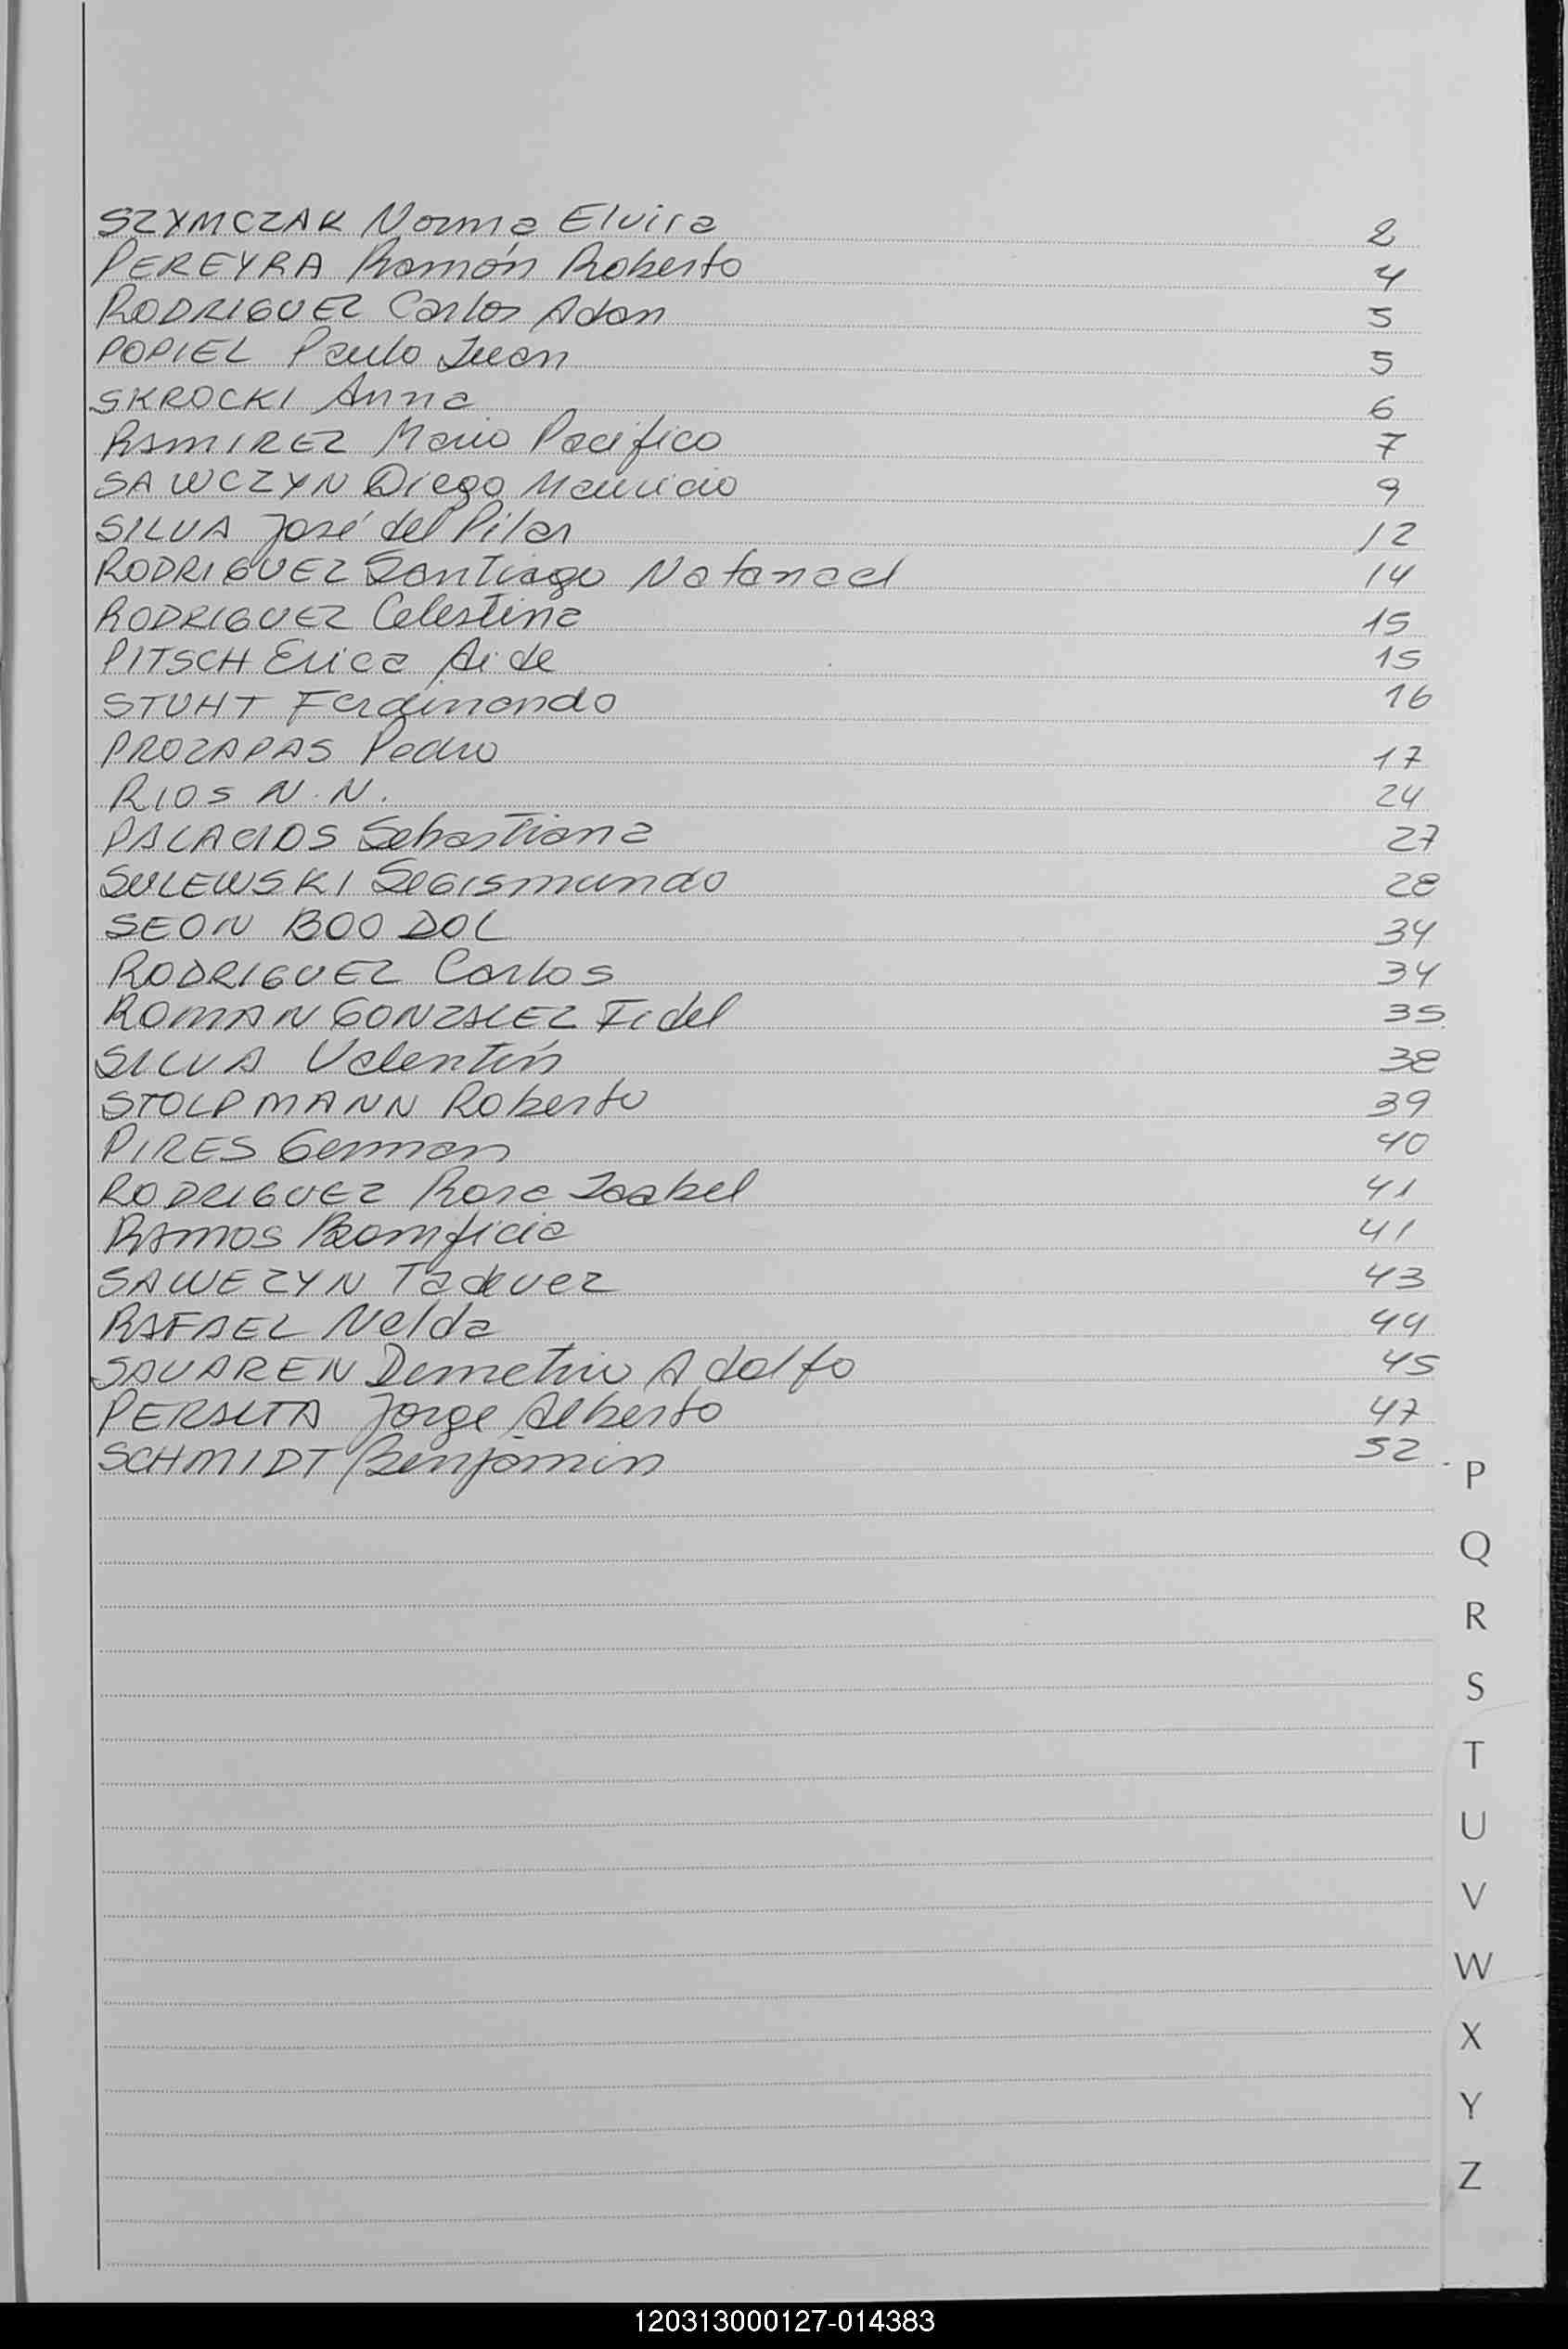 SZYMCZAK Norma Elvira 2
PEREYRA Ramón Roberto 4
RODRIGUEZ Carlos Adan 5
POPIEL Paulo Juan 5
SKROCKI Anna 6
RAMIREZ Mario Pacifico 7
SAWCZYN Diego Mauricio 9
SILVA José del Pilar 12
RODRIGUEZ Santiago Natanael 14
RODRIGUEZ Celestina 15
PITSCH Erica Aide 15
STUHT Ferdinando 16
PROZAPAS Pedro 17
RIOS N. N. 24
PALACIOS Sebastiana 27
SULEWSKI SEGismundo 28
SEON BOO DOL 34
RODRIGUEZ Carlos 34
ROMAN GONZALEZ Fidel 35
SILVA Valentín 38
STOLPMANN Roberto 39
PIRES German 40
RODRIGUEZ Rosa Isabel 41
RAMOS Bomificia 41
SAWEZYN Tadeuez 43
RAFAEL Nelda 44
SAVAREN Demetrio Adolfo 45
PERALTA Jorge Alberto 47
SCHMIDT Benjamin 52
P
Q
R
S
T
U
V
W
X
Y
Z
120313000127-014383